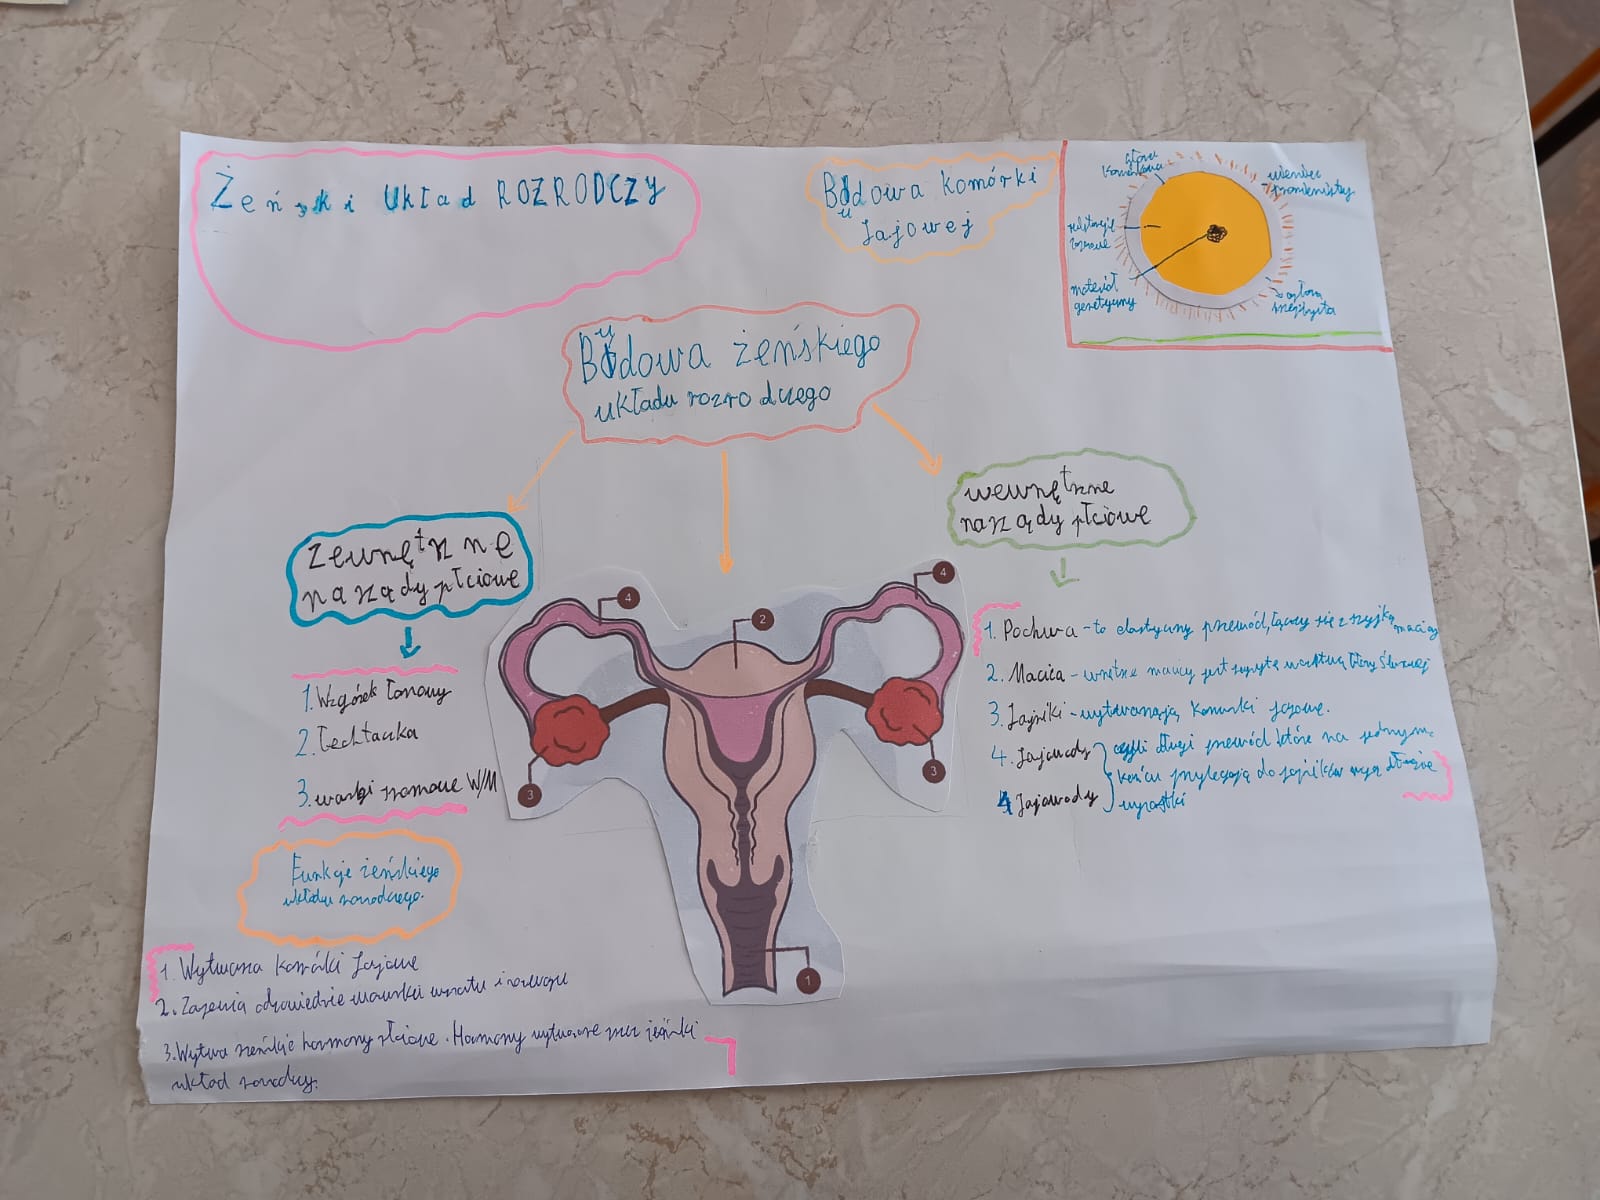 Żeński Układ ROZRODCZY
Budowa Komórki
Jajowej
wieniec
promienisty
materiał
genetyczny
Budowa żeńskiego
układu rozrodczego
zewnętrzne
narządy płciowe
wewnętrzne
narządy płciowe
1. Wzgórek łonowy
2. Łechtaczka
3. wargi sromowe W/M
1. Pochwa - to elastyczny przewód, łączy się z szyjką macicy
2. Macica - wnętrze macicy jest
3. Jajniki - komórki jajowe.
4. Jajowody czyli długi przewód które na jednym
końcu przylegają do jajników
4 Jajowody wypustki
4
2
4
3
3
1
Funkcje żeńskiego
układu rozrodczego.
1. Wytwarza Komórki Jajowe
2. Zapewnia odpowiednie warunki i rozwoju
3. Wytwa żeńskie hormony płciowe. Hormony
układ rozrodczy.